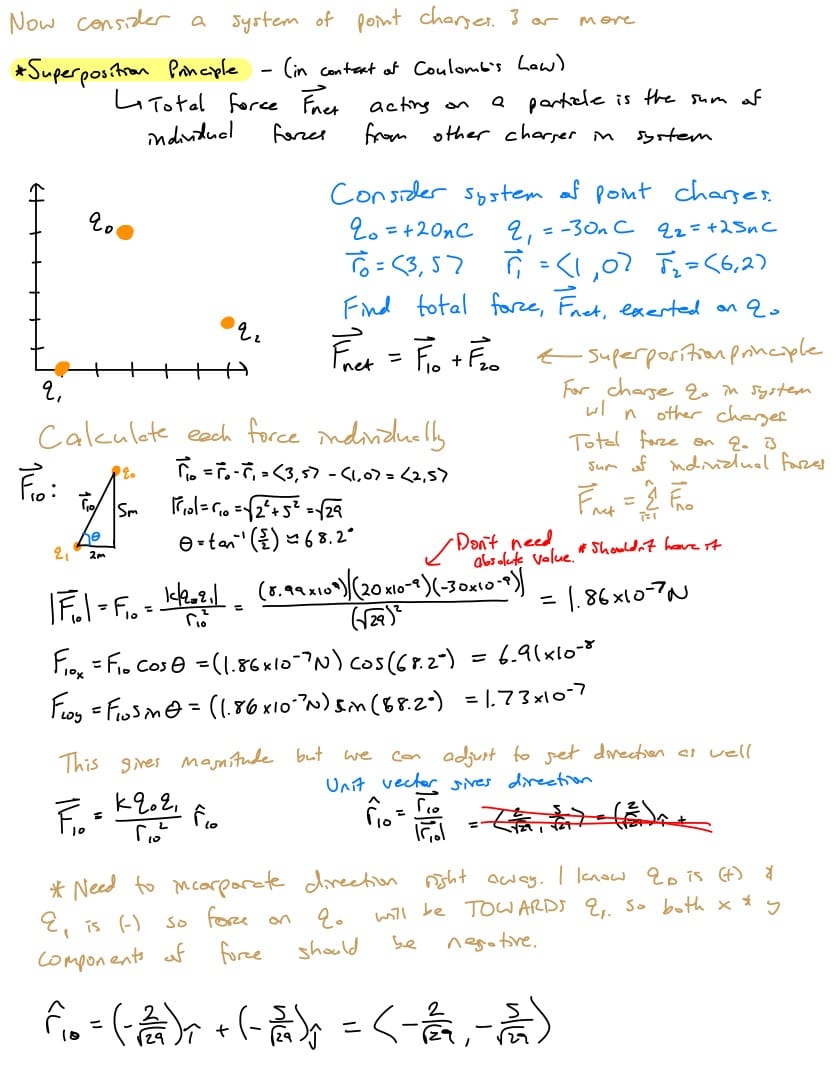 Now consider a system of point charges. 3 or more
*Superposition Principle - (in context of Coulomb's Law)
↳ Total force F⃗net acting on a particle is the sum of
individual forces from other charges in system
q₀
q₂
q₁
Consider system of point charges.
q₀ = +20nC q₁ = -30nC q₂ = +25nC
r⃗₀ = <3,5> r⃗₁ = <1,0> r⃗₂ = <6,2>
Find total force, F⃗net, exerted on q₀
F⃗net = F⃗₁₀ + F⃗₂₀ ← superposition principle
For charge q₀ in system
w/ n other charges
Total force on q₀ is
sum of individual forces
F⃗net = Σⁿᵢ₌₁ F⃗ₙ₀
Calculate each force individually
F⃗₁₀:
q₀
r⃗₁₀
5m
θ
q₁
2m
r⃗₁₀ = r⃗₀ - r⃗₁ = <3,5> - <1,0> = <2,5>
|r⃗₁₀| = r₁₀ = √2² + 5² = √29
θ = tan⁻¹(5/2) ≈ 68.2°
Don't need
absolute value. * Shouldn't have it
|F⃗₁₀| = F₁₀ = k|q₀q₁|/r₁₀² = (8.99x10⁹)|(20x10⁻⁹)(-30x10⁻⁹)|/(√29)² = 1.86x10⁻⁷N
F₁₀ₓ = F₁₀ cosθ = (1.86x10⁻⁷N) cos(68.2°) = 6.91x10⁻⁸
F₁₀y = F₁₀ sinθ = (1.86x10⁻⁷N) sin(68.2°) = 1.73x10⁻⁷
This gives magnitude but we can adjust to get direction as well
Unit vector gives direction
F⃗₁₀ = kq₀q₁/r₁₀² r̂₁₀
r̂₁₀ = r⃗₁₀/|r⃗₁₀| = <2/√29, 5/√29> = (2/√29)î +
* Need to incorporate direction right away. I know q₀ is (+) &
q₁ is (-) so force on q₀ will be TOWARDS q₁. so both x & y
components of force should be negative.
r̂₁₀ = (-2/√29)î + (-5/√29)ĵ = <-2/√29, -5/√29>